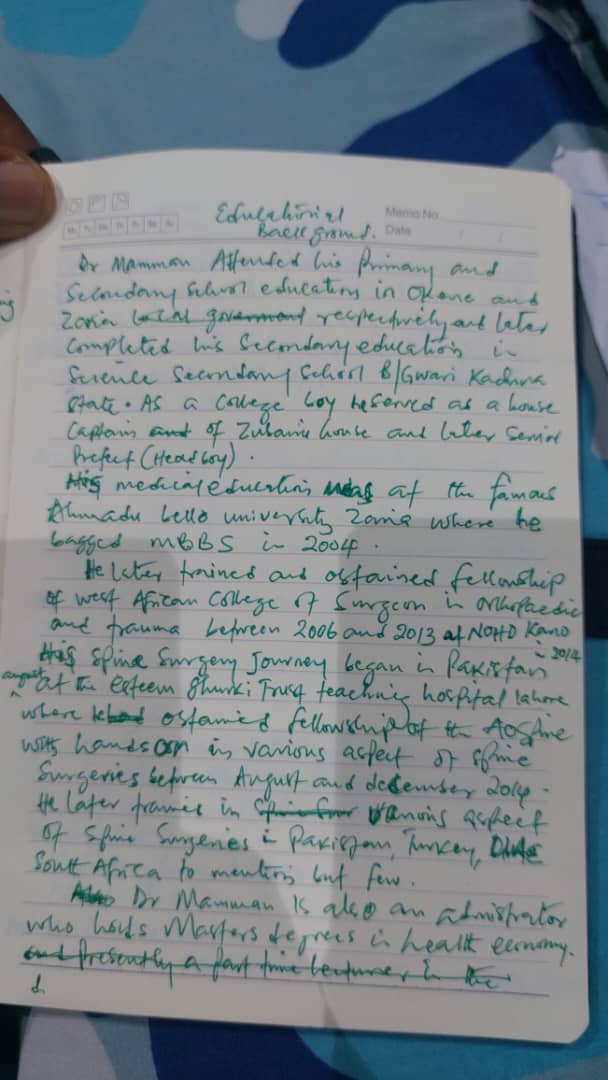 Educational
Background.
Memo No.
Date / /
Mo Tu We Th Fr Sa Su
Dr Mamman Attended his Primary and
Secondary School education in Okene and
Zaria local goverment respectively and later
Completed his Secondary education in
Science Secondary School B/Gwari Kaduna
State. As a College boy he served as a house
Captain and of house and later Senior
Prefect (Head boy).
His medical education was at the famous
Ahmadu bello university Zaria where he
bagged MBBS in 2004.
He later trained and obtained fellowship
of west African College of Surgeon in orthopaedic
and trauma between 2006 and 2013 at NOHD Kano
in 2014
His Spine Surgery Journey began in Pakistan
august
at the esteem Ghurki Trust teaching hospital lahore
where he obtained fellowship of the AOSpine
with hands on in various aspect of spine
Surgeries between August and december 2014.
He later trained in various aspect
of Spine Surgeries in Pakistan, Turkey,
South Africa to mention but few.
Also Dr Mamman is also an admistrator
who holds Masters degrees in health economy.
and presently a part time lecturer in the
d